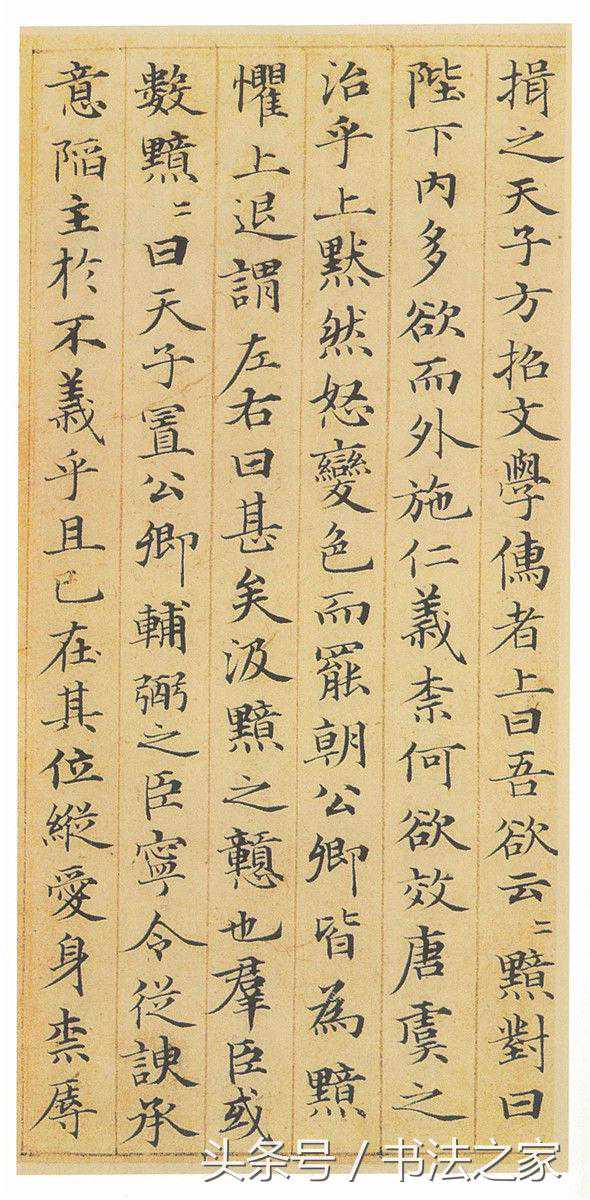 揖之天子方招文學儒者上曰吾欲云〻黯對曰
陛下內多欲而外施仁義柰何欲效唐虞之
治乎上黙然怒變色而罷朝公卿皆為黯
懼上退謂左右曰甚矣汲黯之戇也羣臣或
數黯〻曰天子置公卿輔弼之臣寧令從諛承
意陷主於不義乎且已在其位縱愛身柰辱
头条号 / 书法之家